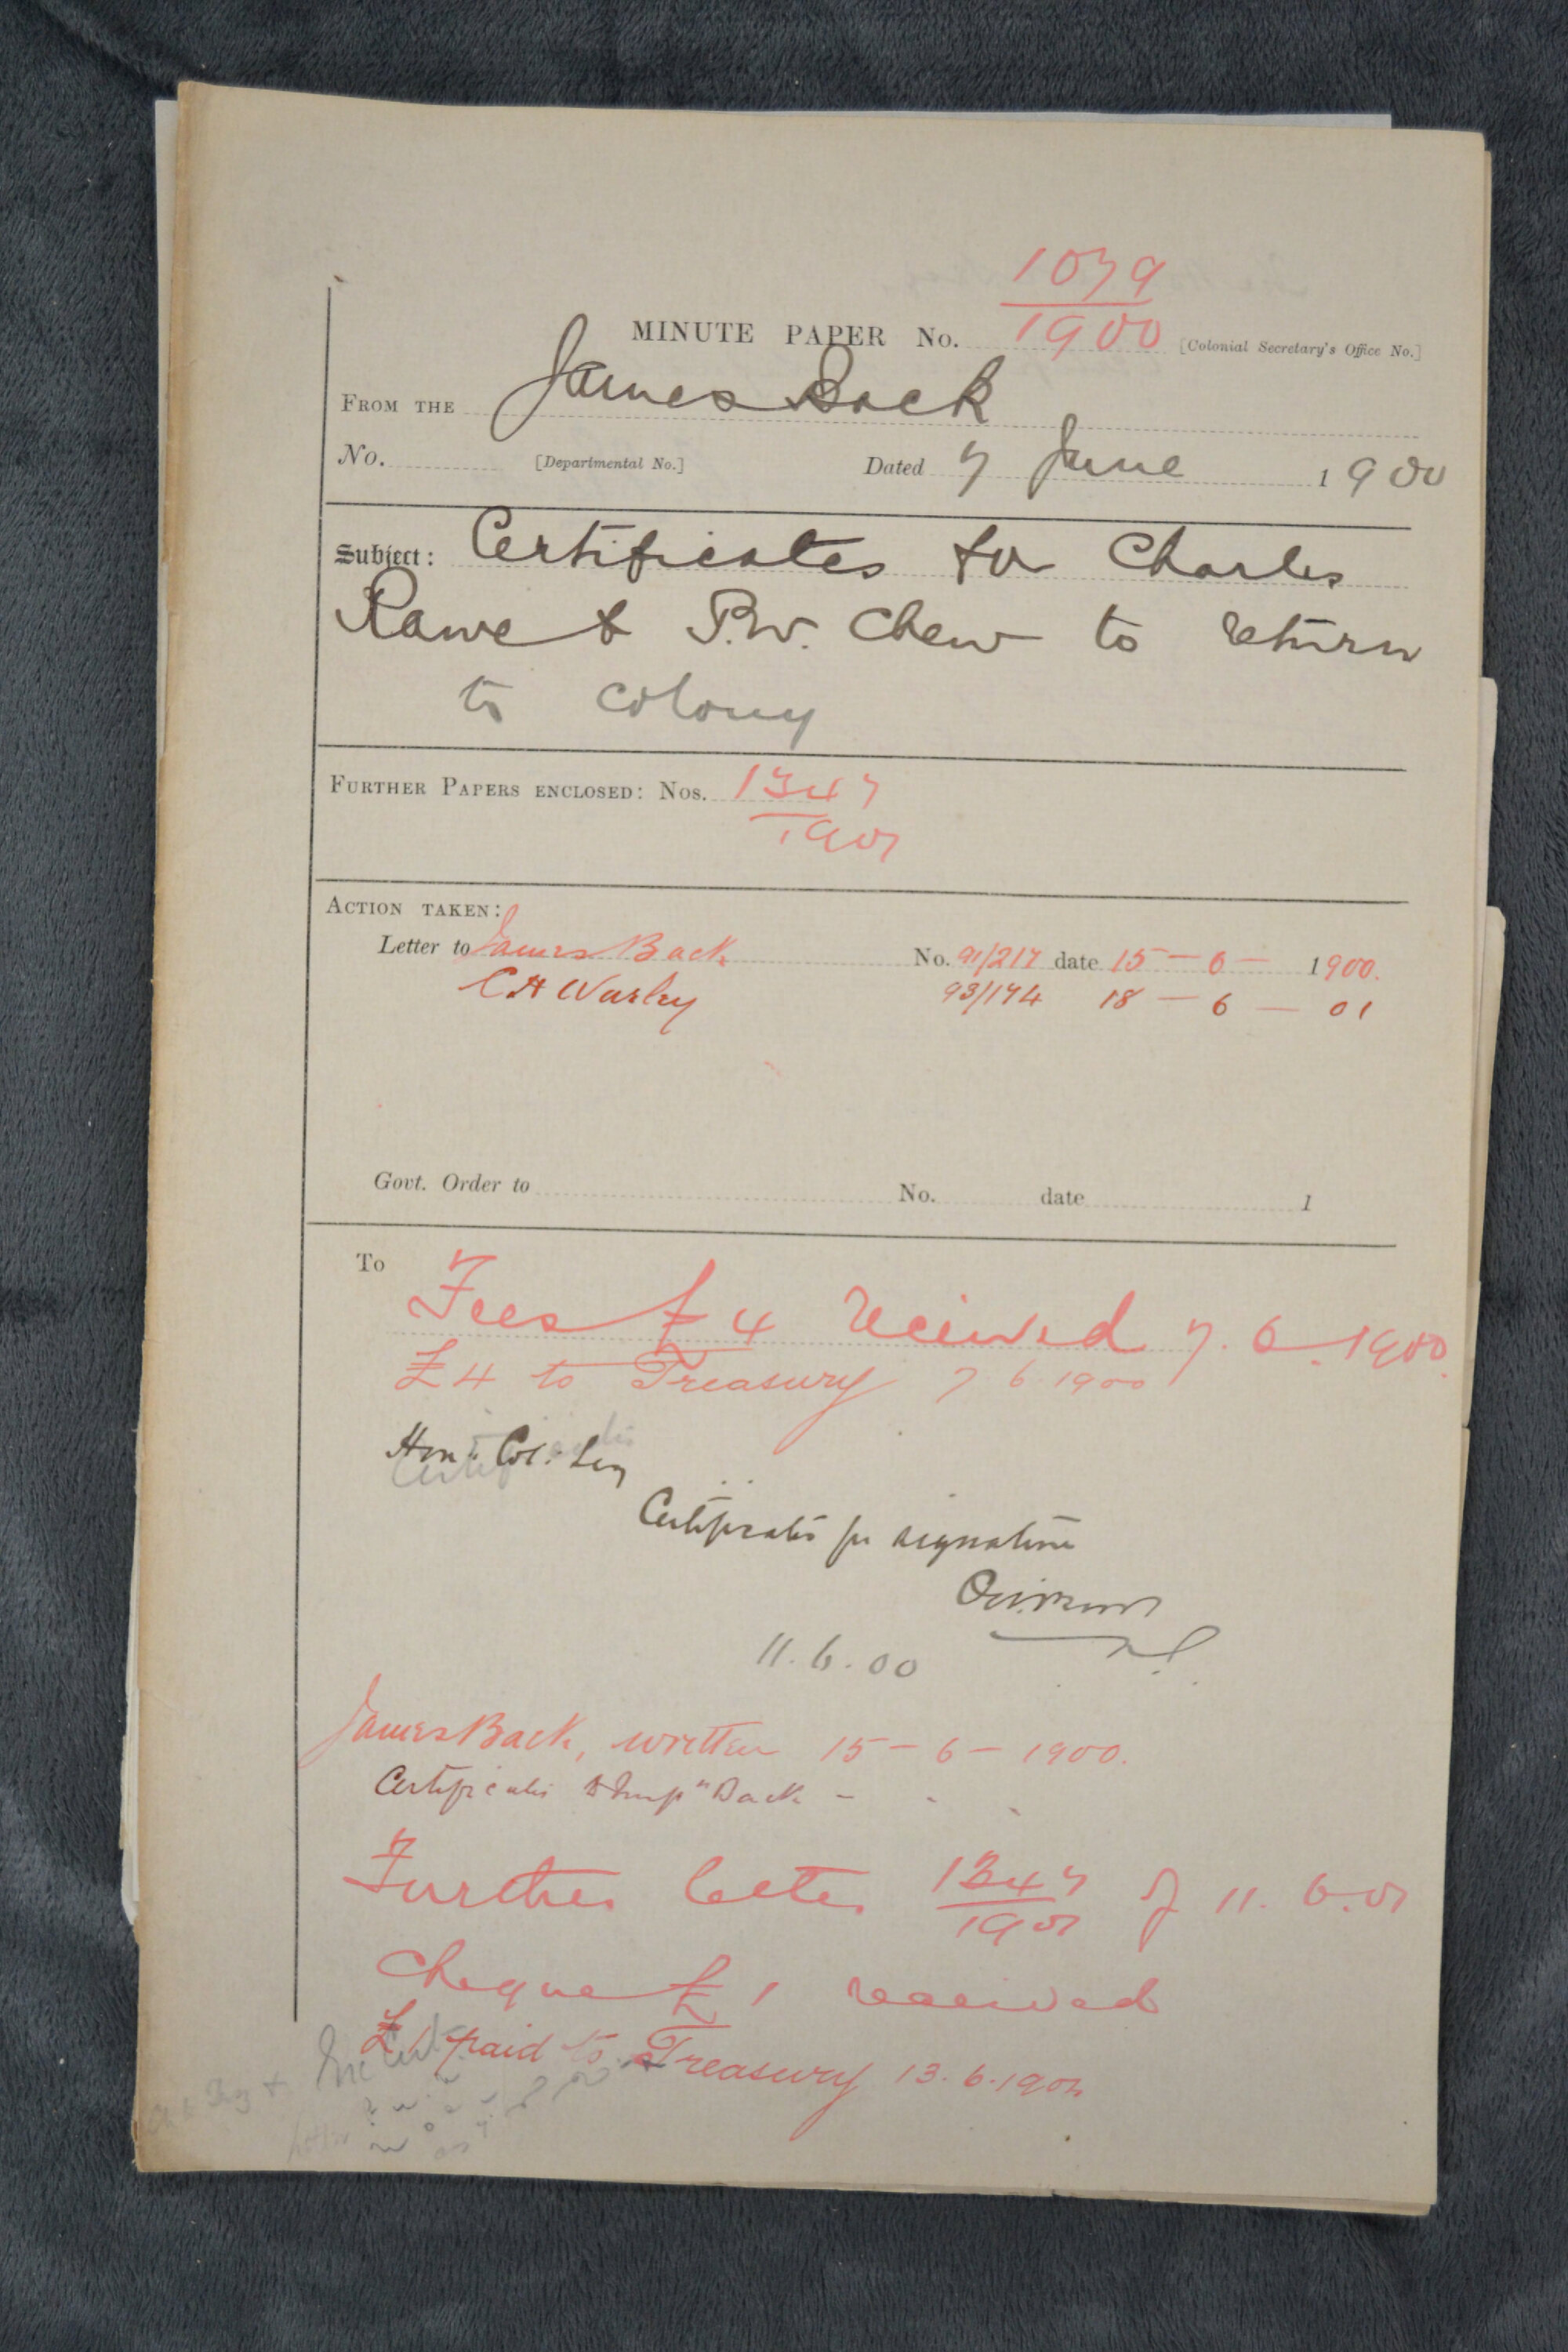 1079
MINUTE PAPER No. 1900 [Colonial Secretary's Office No.]
FROM THE James Back
No. [Departmental No.] Dated 7 June 1900
Subject: Certificates for Charles
Rawe & P.W. Chew to return
to colony
FURTHER PAPERS ENCLOSED: Nos. 1347
1901
ACTION TAKEN:
Letter to James Back No. 91/217 date 15 – 6 – 1900.
C.H Warley 93/174 18 – 6 – 01
Govt. Order to No. date 1
To
Fees £4 received 7.6.1900.
£4 to Treasury 7 6 1900
Hon. Col. Sec
Certificates for signature
11.6.00
James Back, written 15 – 6 – 1900.
Certificates Back – . .
Further letter 1347 of 11.6.01
1901
Cheque £1 received
£1 paid to Treasury 13.6.1901